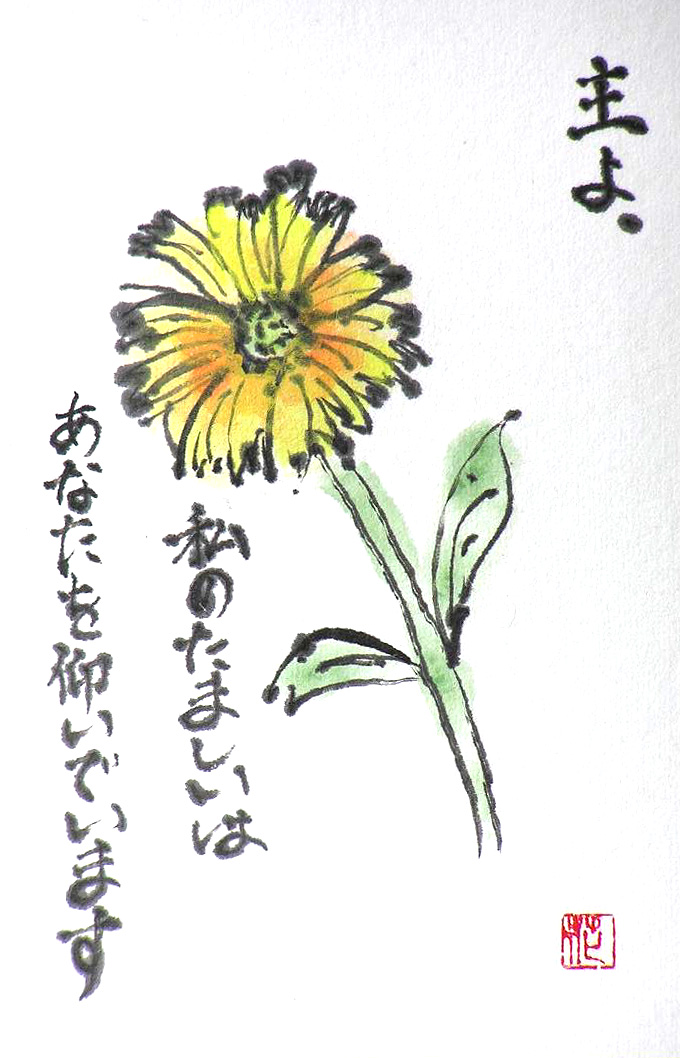 主よ、
私のたましいは
あなたを仰いでいます